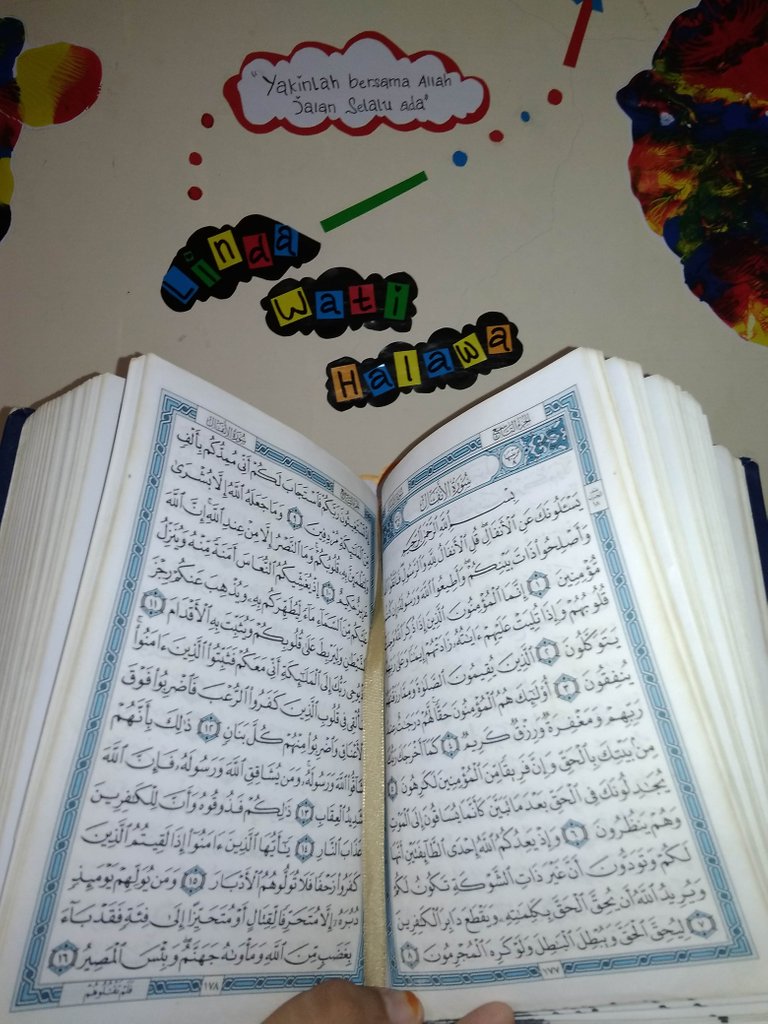 "Yakinlah bersama Allah
Jalan Selalu ada"
Linda
Wati
Halawa
سُورَةُ الأَنفَالِ
سُورَةُ الأَنفَالِ
بِسْمِ اللَّهِ الرَّحْمَٰنِ الرَّحِيمِ
يَسْـَٔلُونَكَ عَنِ ٱلْأَنفَالِ قُلِ ٱلْأَنفَالُ لِلَّهِ وَٱلرَّسُولِ
وَأَصْلِحُوا۟ ذَاتَ بَيْنِكُمْ وَأَطِيعُوا۟ ٱللَّهَ وَرَسُولَهُۥٓ
مُّؤْمِنِينَ ١ إِنَّمَا ٱلْمُؤْمِنُونَ ٱلَّذِينَ إِذَا ذُكِرَ ٱللَّهُ
قُلُوبُهُمْ وَإِذَا تُلِيَتْ عَلَيْهِمْ ءَايَٰتُهُۥ زَادَتْهُمْ إِيمَٰنًا وَعَلَىٰ
يَتَوَكَّلُونَ ٢ ٱلَّذِينَ يُقِيمُونَ ٱلصَّلَوٰةَ وَمِمَّا رَزَقْنَٰهُمْ
يُنفِقُونَ ٣ أُو۟لَٰٓئِكَ هُمُ ٱلْمُؤْمِنُونَ حَقًّا لَّهُمْ دَرَجَٰتٌ
رَبِّهِمْ وَمَغْفِرَةٌ وَرِزْقٌ كَرِيمٌ ٤ كَمَآ أَخْرَجَكَ
مِنۢ بَيْتِكَ بِٱلْحَقِّ وَإِنَّ فَرِيقًا مِّنَ ٱلْمُؤْمِنِينَ لَكَٰرِهُونَ ٥
يُجَٰدِلُونَكَ فِى ٱلْحَقِّ بَعْدَمَا تَبَيَّنَ كَأَنَّمَا يُسَاقُونَ إِلَى ٱلْمَوْتِ
وَهُمْ يَنظُرُونَ ٦ وَإِذْ يَعِدُكُمُ ٱللَّهُ إِحْدَى ٱلطَّآئِفَتَيْنِ أَنَّهَا
لَكُمْ وَتَوَدُّونَ أَنَّ غَيْرَ ذَاتِ ٱلشَّوْكَةِ تَكُونُ لَكُمْ
وَيُرِيدُ ٱللَّهُ أَن يُحِقَّ ٱلْحَقَّ بِكَلِمَٰتِهِۦ وَيَقْطَعَ دَابِرَ ٱلْكَٰفِرِينَ ٧
لِيُحِقَّ ٱلْحَقَّ وَيُبْطِلَ ٱلْبَٰطِلَ وَلَوْ كَرِهَ ٱلْمُجْرِمُونَ ٨
١٧٧
رَبَّكُمْ فَٱسْتَجَابَ لَكُمْ أَنِّى مُمِدُّكُم بِأَلْفٍ
مِّنَ ٱلْمَلَٰٓئِكَةِ مُرْدِفِينَ ٩ وَمَا جَعَلَهُ ٱللَّهُ إِلَّا بُشْرَىٰ
بِهِۦ قُلُوبُكُمْ وَمَا ٱلنَّصْرُ إِلَّا مِنْ عِندِ ٱللَّهِ إِنَّ ٱللَّهَ
حَكِيمٌ ١٠ إِذْ يُغَشِّيكُمُ ٱلنُّعَاسَ أَمَنَةً مِّنْهُ وَيُنَزِّلُ
عَلَيْكُم مِّنَ ٱلسَّمَآءِ مَآءً لِّيُطَهِّرَكُم بِهِۦ وَيُذْهِبَ عَنكُمْ رِجْزَ
ٱلشَّيْطَٰنِ وَلِيَرْبِطَ عَلَىٰ قُلُوبِكُمْ وَيُثَبِّتَ بِهِ ٱلْأَقْدَامَ ١١
يُوحِى رَبُّكَ إِلَى ٱلْمَلَٰٓئِكَةِ أَنِّى مَعَكُمْ فَثَبِّتُوا۟ ٱلَّذِينَ ءَامَنُوا۟
سَأُلْقِى فِى قُلُوبِ ٱلَّذِينَ كَفَرُوا۟ ٱلرُّعْبَ فَٱضْرِبُوا۟ فَوْقَ
ٱلْأَعْنَاقِ وَٱضْرِبُوا۟ مِنْهُمْ كُلَّ بَنَانٍ ١٢ ذَٰلِكَ بِأَنَّهُمْ
شَآقُّوا۟ ٱللَّهَ وَرَسُولَهُۥ وَمَن يُشَاقِقِ ٱللَّهَ وَرَسُولَهُۥ فَإِنَّ ٱللَّهَ
شَدِيدُ ٱلْعِقَابِ ١٣ ذَٰلِكُمْ فَذُوقُوهُ وَأَنَّ لِلْكَٰفِرِينَ
عَذَابَ ٱلنَّارِ ١٤ يَٰٓأَيُّهَا ٱلَّذِينَ ءَامَنُوٓا۟ إِذَا لَقِيتُمُ ٱلَّذِينَ
كَفَرُوا۟ زَحْفًا فَلَا تُوَلُّوهُمُ ٱلْأَدْبَارَ ١٥ وَمَن يُوَلِّهِمْ يَوْمَئِذٍ
دُبُرَهُۥٓ إِلَّا مُتَحَرِّفًا لِّقِتَالٍ أَوْ مُتَحَيِّزًا إِلَىٰ فِئَةٍ فَقَدْ بَآءَ
بِغَضَبٍ مِّنَ ٱللَّهِ وَمَأْوَىٰهُ جَهَنَّمُ وَبِئْسَ ٱلْمَصِيرُ ١٦
١٧٨
فَلَمْ تَقْتُلُوهُمْ